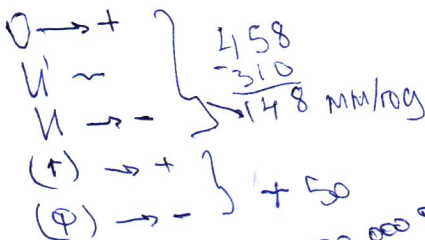 О → +
И' ~
И → -
458
-310
148 мм/год
(↑) → +
(φ) → -
+ 50